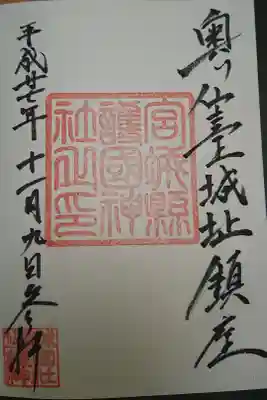 奥州仙臺城址鎮座
宮城縣
護國神
社之印
平成廿七年十一月九日参拝